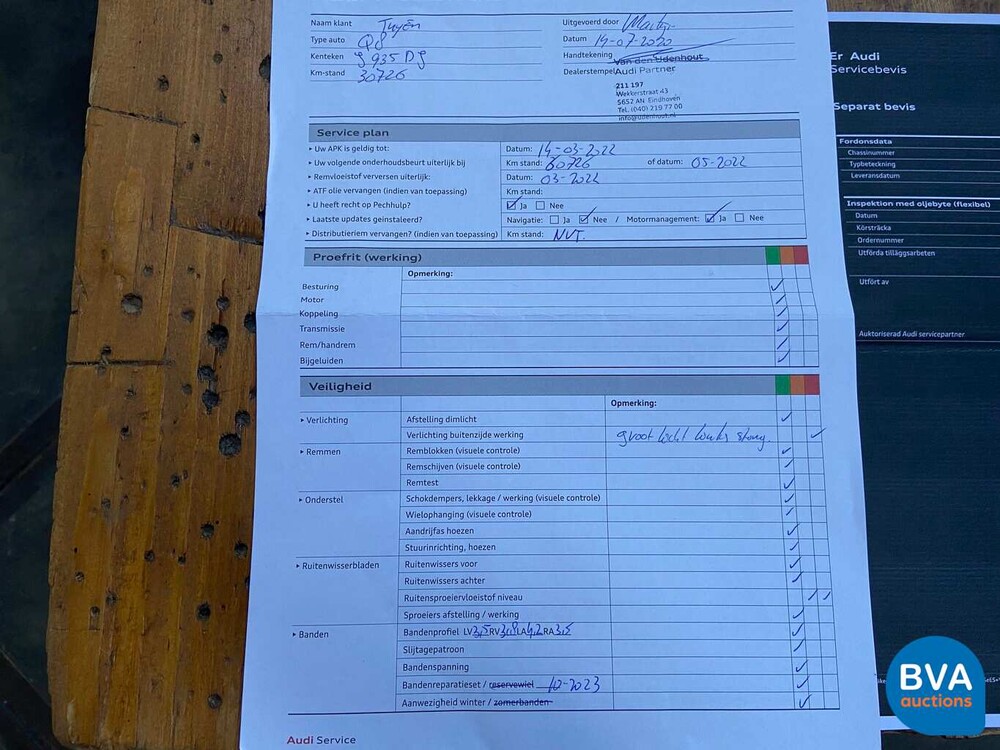 Naam klant Tuyên
Type auto Q8
Kenteken 935 DJ
Km-stand 30726
Uitgevoerd door
Datum 14-07-2020
Handtekening
Van den Udenhout
Dealerstempel Audi Partner
211 197
Wekkerstraat 43
5652 AN Eindhoven
Tel. (040) 219 77 00
info@udenhout.nl
Service plan
▸ Uw APK is geldig tot: Datum: 14-03-2022
▸ Uw volgende onderhoudsbeurt uiterlijk bij Km stand: 60726 of datum: 05-2022
▸ Remvloeistof verversen uiterlijk: Datum: 03-2022
▸ ATF olie vervangen (indien van toepassing) Km stand:
▸ U heeft recht op Pechhulp? Ja Nee
▸ Laatste updates geinstaleerd? Navigatie: Ja Nee / Motormanagement: Ja Nee
▸ Distributieriem vervangen? (indien van toepassing) Km stand: NVT.
Proefrit (werking)
Opmerking:
Besturing
Motor
Koppeling
Transmissie
Rem/handrem
Bijgeluiden
Veiligheid
Opmerking:
▸ Verlichting Afstelling dimlicht
Verlichting buitenzijde werking groot licht links
▸ Remmen Remblokken (visuele controle)
Remschijven (visuele controle)
Remtest
▸ Onderstel Schokdempers, lekkage / werking (visuele controle)
Wielophanging (visuele controle)
Aandrijfas hoezen
Stuurinrichting, hoezen
▸ Ruitenwisserbladen Ruitenwissers voor
Ruitenwissers achter
Ruitensproeiervloeistof niveau
Sproeiers afstelling / werking
▸ Banden Bandenprofiel LV 3,5 RV 3,8 LA 4,2 RA 3,5
Slijtagepatroon
Bandenspanning
Bandenreparatieset / reservewiel 10-2023
Aanwezigheid winter / zomerbanden
Audi Service
Er Audi
Servicebevis
Separat bevis
Fordonsdata
Chassinummer
Typbeteckning
Leveransdatum
Inspektion med oljebyte (flexibel)
Datum
Körsträcka
Ordernummer
Utförda tilläggsarbeten
Utfört av
Auktoriserad Audi servicepartner
BVA
auctions